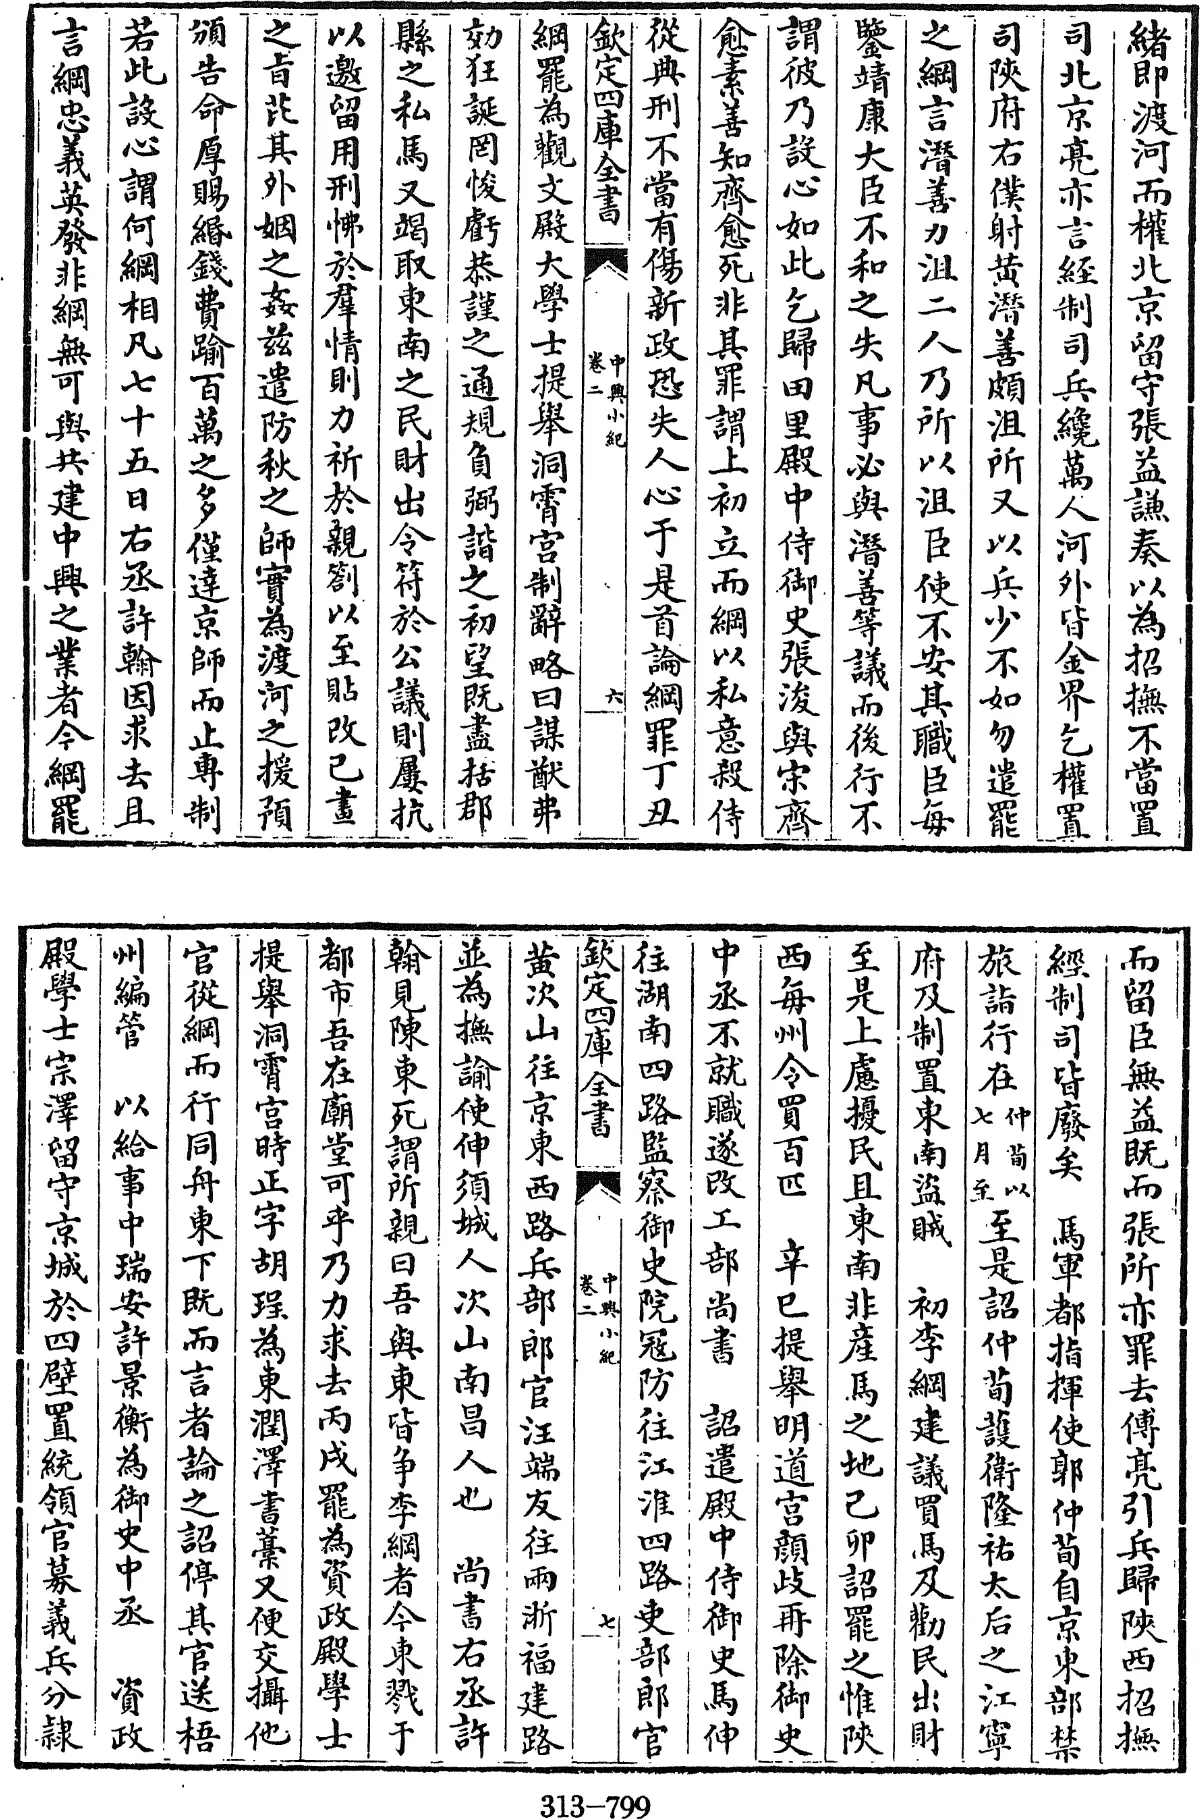 緒即渡河而權北京留守張益謙奏以為招撫不當置
司北京亮亦言經制司兵纔萬人河外皆金界乞權置
司陝府右僕射黄潛善頗沮所又以兵少不如勿遣罷
之綱言潛善力沮二人乃所以沮臣使不安其職臣每
鑒靖康大臣不和之失凡事必與潛善等議而後行不
謂彼乃設心如此乞歸田里殿中侍御史張浚與宋齊
愈素善知齊愈死非其罪謂上初立而綱以私意殺侍
從典刑不當有傷新政恐失人心于是首論綱罪丁丑
欽定四庫全書
中興小紀
卷二
六
綱罷為觀文殿大學士提舉洞霄宫制辭略曰謀猷弗
効狂誕罔悛虧恭謹之通規負弼諧之初望既盡括郡
縣之私馬又竭取東南之民財出令符於公議則屢抗
以邀留用刑怫於羣情則力祈於親劄以至貼改已畫
之㫖芘其外姻之姦兹遣防秋之師實為渡河之援預
頒告命厚賜緡錢費踰百萬之多僅達京師而止專制
若此設心謂何綱相凡七十五日右丞許翰因求去且
言綱忠義英發非綱無可與共建中興之業者今綱罷
而留臣無益既而張所亦罪去傅亮引兵歸陝西招撫
經制司皆廢矣 馬軍都指揮使郭仲荀自京東部禁
旅詣行在仲荀以七月至至是詔仲荀䕶衛隆祐太后之江寧
府及制置東南盜賊 初李綱建議買馬及勸民出財
至是上慮擾民且東南非産馬之地己卯詔罷之惟陝
西每州令買百匹 辛巳提舉明道宫顔歧再除御史
中丞不就職遂改工部尚書 詔遣殿中侍御史馬伸
往湖南四路監察御史院冦防往江淮四路吏部郎官
欽定四庫全書
中興小紀
卷二
七
黄次山往京東西路兵部郎官汪端友往兩浙福建路
並為撫諭使伸須城人次山南昌人也 尚書右丞許
翰見陳東死謂所親曰吾與東皆爭李綱者今東戮于
都市吾在廟堂可乎乃力求去丙戌罷為資政殿學士
提舉洞霄宫時正字胡珵為東潤澤書藁又便交攝他
官從綱而行同舟東下既而言者論之詔停其官送梧
州編管 以給事中瑞安許景衡為御史中丞 資政
殿學士宗澤留守京城於四壁置統領官募義兵分隷
313-799